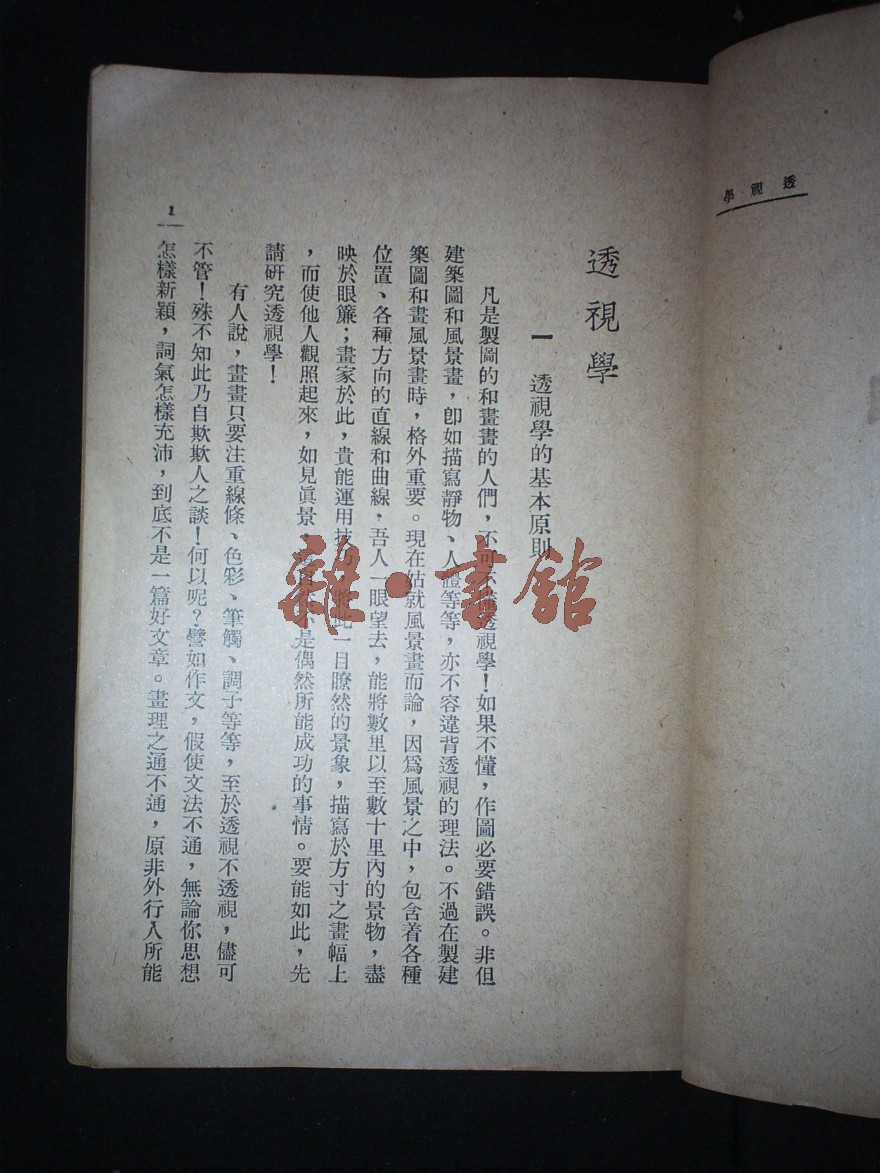 透視學
透視學
一 透視學的基本原則
凡是製圖的和畫畫的人們，不可不懂透視學！如果不懂，作圖必要錯誤。非但
建築圖和風景畫，卽如描寫靜物、人體等等，亦不容違背透視的理法。不過在製建
築圖和畫風景畫時，格外重要。現在姑就風景畫而論，因爲風景之中，包含着各種
位置、各種方向的直線和曲線，吾人一眼望去，能將數里以至數十里內的景物，盡
映於眼簾；畫家於此，貴能運用技巧，將此一目瞭然的景象，描寫於方寸之畫幅上
，而使他人觀照起來，如見眞景，是偶然所能成功的事情。要能如此，先
請研究透視學！
有人說，畫畫只要注重線條、色彩、筆觸、調子等等，至於透視不透視，儘可
不管！殊不知此乃自欺欺人之談！何以呢？譬如作文，假使文法不通，無論你思想
怎樣新穎，詞氣怎樣充沛，到底不是一篇好文章。畫理之通不通，原非外行人所能
1
雜·書館